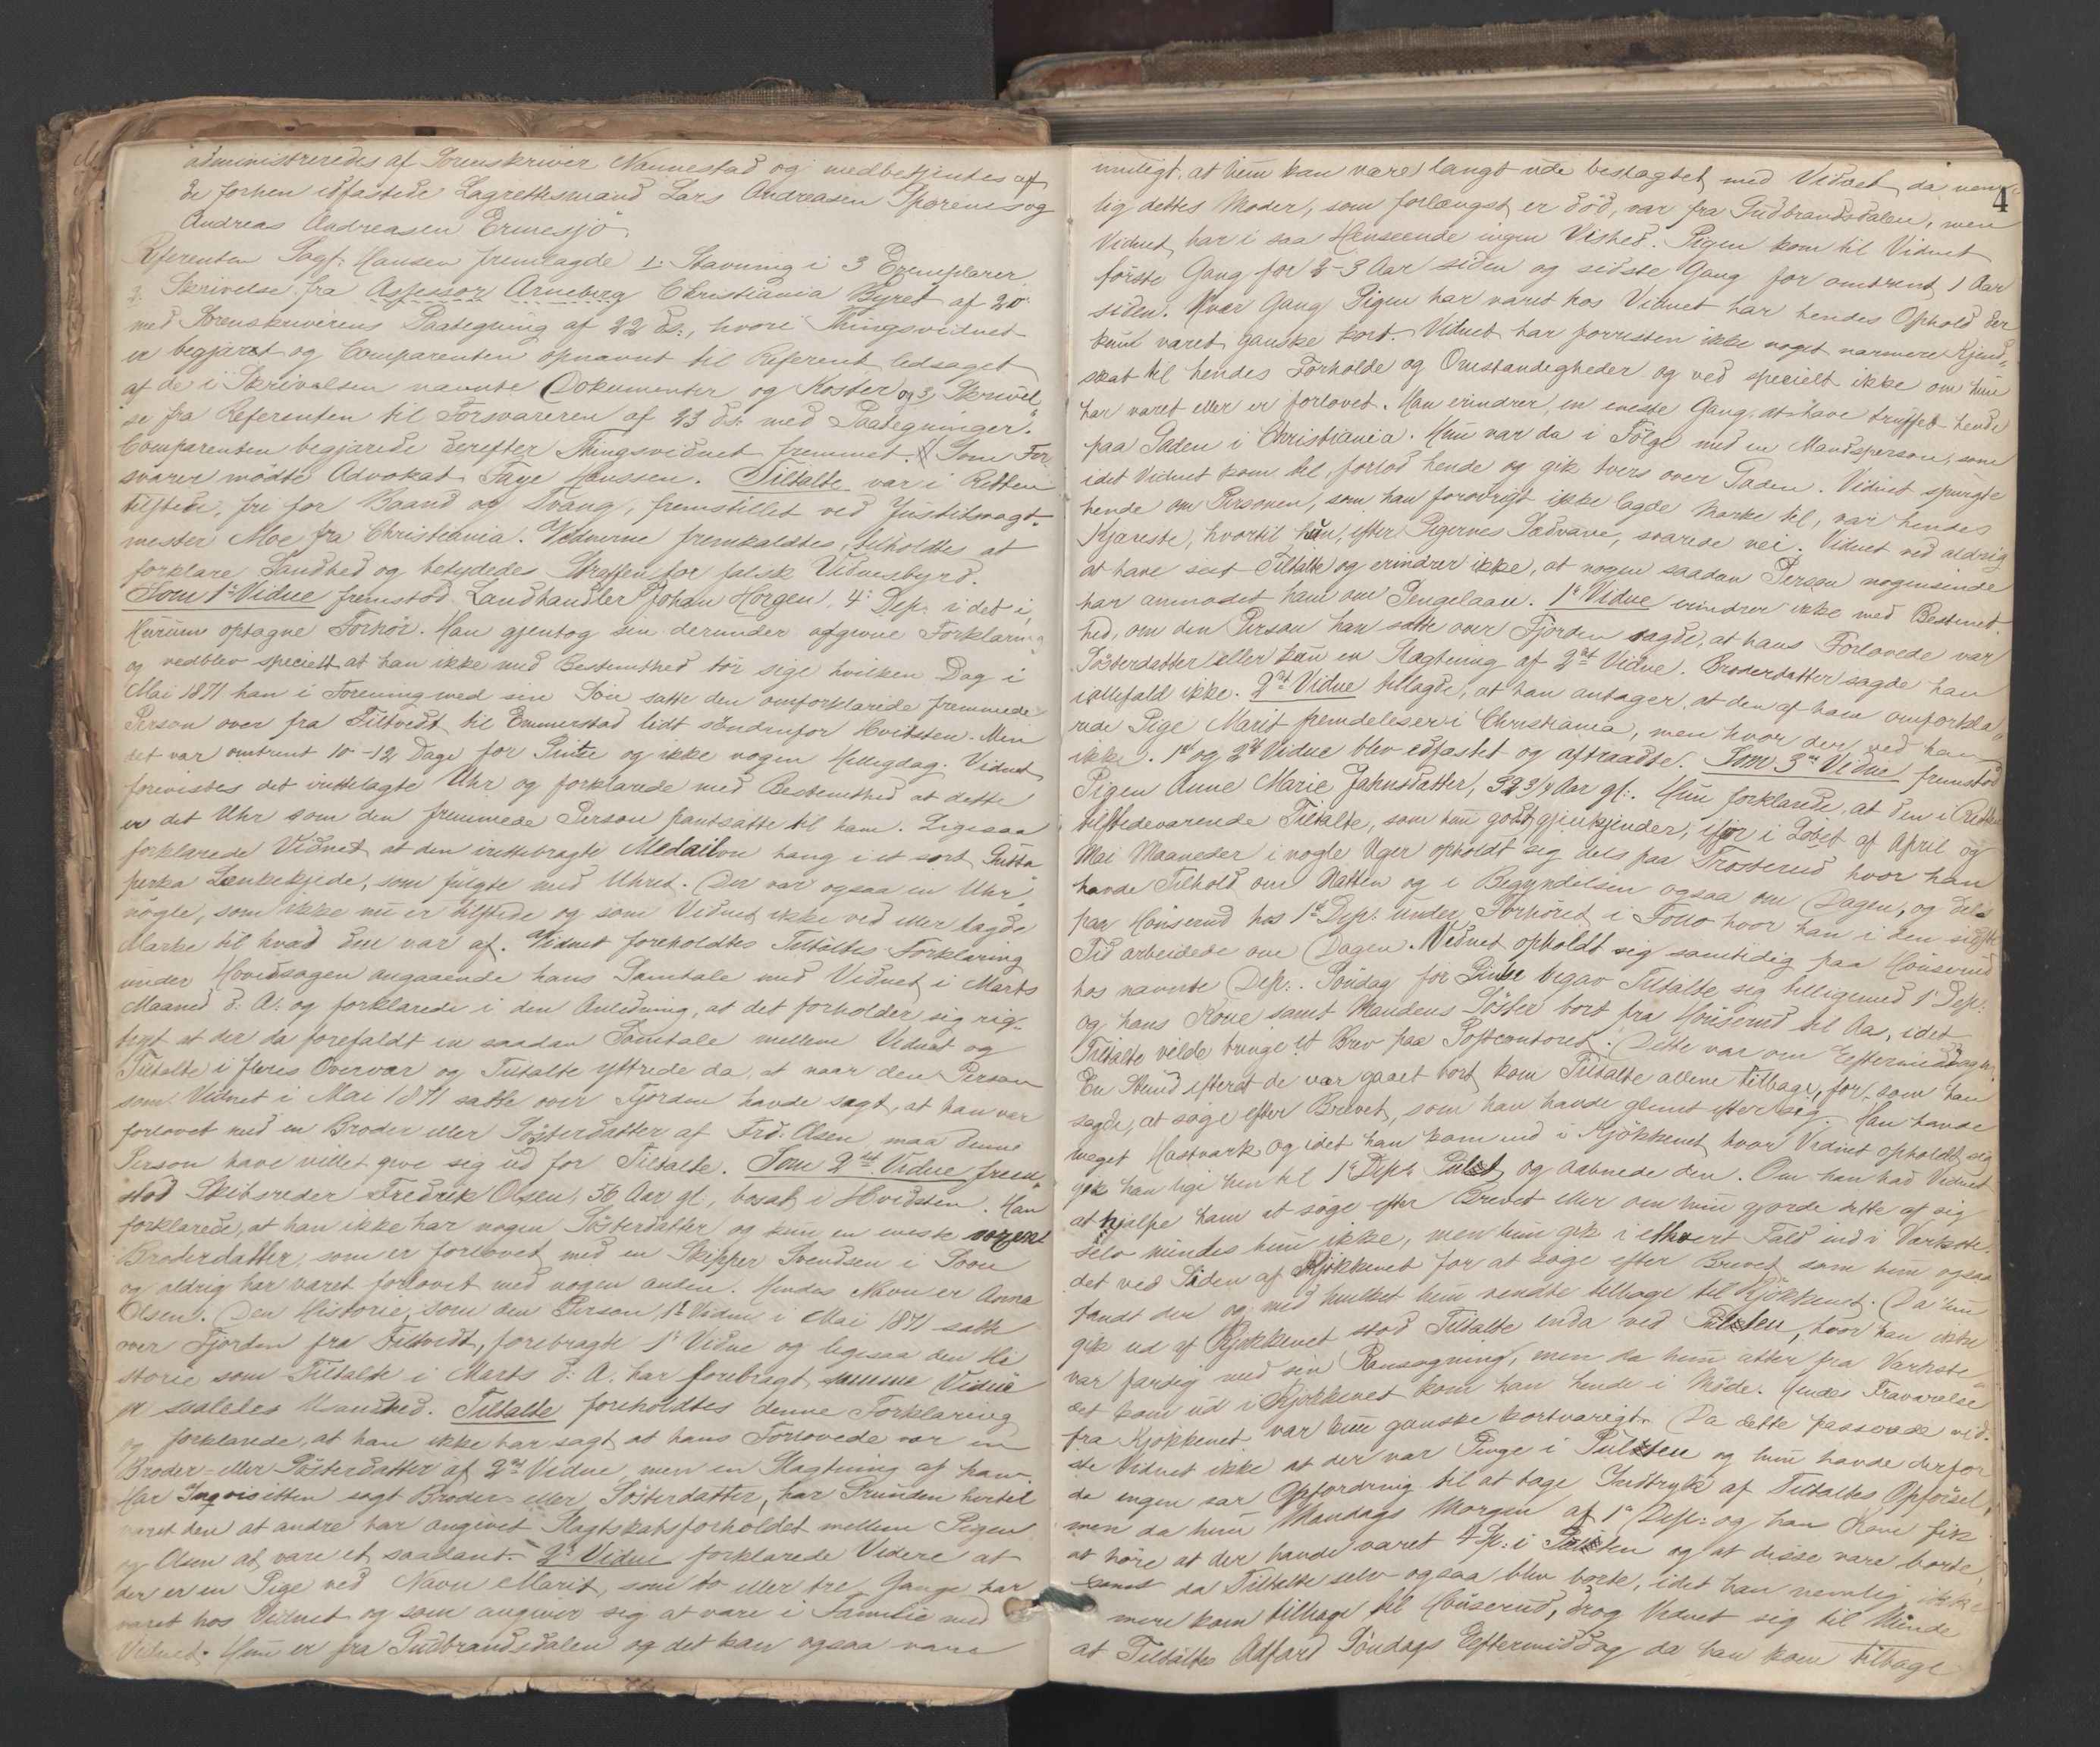 administreredes af Sorenskriver Nannestad og medbetjentes af
de forhen edfæstede Lagrettesmænd Lars Andreasen Sporenes og
Andreas Andreasen Ermesjö.
Referenten Sagf: Hansen fremlagde 1: Stævning i 3 Exemplarer
2: Skrivelse fra Assessor Arneberg Christiania Byret af 20:
med Sorenskriverens Paategning af 22 ds:, hvori Thingsvidnet
er begjæret og Comparenten opnævnt til Referent ledsaget
af de i Skrivelsen nævnte Dokumenter og Koster og 3, Skrivel
se fra Referenten til Forsvareren af 23 ds: med Paategninger.
Comparenten begjærede derefter Thingsvidnet fremmet. // Som For
svarer mödte Advokat Faye Hanssen. Tiltalte var i Retten
tilstede, fri for Baand og Tvang, fremstillet ved Justitsvagt-
mester Moe fra Christiania. Vidnerne fremkaldtes, tilholdtes at
forklare Sandhed og betydedes Straffen for falsk Vidnesbyrd.
Som 1e Vidne fremstod Landhandler Johan Horgen, 4: Dep: i det i
Hurum optagne Forhör. Han gjentog sin derunder afgivne Forklaring
og vedblev specielt at han ikke med Bestemthed tör sige hvilken Dag i
Mai 1871 han i Forening med sin Sön satte den omforklarede fremmede
Person over fra Filtvedt til Emmerstad lidt söndenfor Hvidsten. Men
det var omtrent 10-12 Dage för Pintse og ikke nogen Helligdag. Vidnet
forevistes det irettelagte Uhr og forklarede med Bestemthed at dette
er det Uhr som den fremmede Person pantsatte til ham. Ligesaa
forklarede Vidnet at den irettebragte Medailon hang i et sort Gutta
perka Lænkekjede, som fulgte med Uhret. Der var ogsaa en Uhr
nögle, som ikke nu er tilstede og som Vidnet ikke ved eller lagde
Mærke til hvad den var af. Vidnet foreholdtes Tiltaltes Forklaring
under Hovedsagen angaaende hans Samtale med Vidnet i Marts
Maaned d: A: og forklarede i den Anledning, at det forholder sig rig-
tigt at der da forefaldt en saadan Samtale mellem Vidnet og
Tiltalte i fleres Overvær og Tiltalte yttrede da, at naar den Person
som Vidnet i Mai 1871 satte over Fjorden havde sagt, at han var
forlovet med en Broder eller Sösterdatter af Frd: Olsen, maa denne
Person have villet give sig ud for Tiltalte. Som 2det Vidne frem
stod Skibsreder Fredrik Olsen, 56 Aar gl:, bosat i Hvidsten. Han
forklarede, at han ikke har nogen Sösterdatter og kun en eneste voxen
Broderdatter, som er forlovet med en Skipper Svendsen i Soon
og aldrig har været forlovet med nogen anden. Hendes Navn er Anna
Olsen. Den Historie, som den Person, 1e Vidne i Mai 1871 satte
over Fjorden fra Filtvedt, forebragte 1e Vidne og ligesaa den Hi
storie som Tiltalte i Marts d: A. har forebragt samme Vidne
er saaledes Usandhed. Tiltalte foreholdtes denne Forklaring
og forklarede, at han ikke har sagt at hans Forlovede var en
Broder- eller Sösterdatter af 2det Vidne, men en Slægtning af ham.
Har Inqvisitten sagt Broder- eller Sösterdatter, har Grunden hertil
været den at andre har angivet Slægtskabsforholdet mellem Pigen
og Olsen at være et saadant. 2et Vidne forklarede Videre at
der er en Pige ved Navn Marit, som to eller tre Gange har
været hos Vidnet og som angiver sig at være i Familie med
Vidnet. Hun er fra Gudbrandsdalen og det kan ogsaa være
muligt, at hun kan være langt ude beslægtet med Vidnet, da nem
lig dettes Moder, som forlængst er död, var fra Gudbrandsdalen, men
Vidnet har i saa Henseende ingen Vished. Pigen kom til Vidnet
förste Gang for 2-3 Aar siden og sidste Gang for omtrent 1 Aar
siden. Hver Gang Pigen har været hos Vidnet har hendes Ophold der
kun været ganske kort. Vidnet har forresten ikke noget nærmere Kjend
skab til hendes Forholde og Omstændigheder og ved specielt ikke om hun
har været eller er forlovet. Han erindrer, en eneste Gang, at have truffet hende
paa Gaden i Christiania. Hun var da i Fölge med en Mandsperson, som
idet Vidnet kom til, forlod hende og gik tvers over Gaden. Vidnet spurgte
hende om Personen, som han forövrigt ikke lagde Mærke til, var hendes
Kjæreste, hvortil hun, efter Pigernes Sædvane, svarede nei. Vidnet ved aldrig
at have seet Tiltalte og erindrer ikke, at nogen saadan Person nogensinde
har anmodet ham om Pengelaan. 1e Vidne erindrer ikke med Bestemt
hed, om den Person han satte over Fjorden sagde, at hans Forlovede var
Sösterdatter eller kun en Slægtning af 2det Vidne. Broderdatter sagde han
iallefald ikke. 2et Vidne tillagde, at han antager, at den af ham omforkla
rede Pige Marit fremdeles er i Christiania, men hvor der, ved han
ikke. 1ste og 2det Vidne blev edfæstet og aftraadte. Som 3die Vidne fremstod
Pigen Anne Marie Jahnsdatter, 32 3/4 Aar gl:. Hun forklarede, at den i Retten
tilstedeværende Tiltalte, som hun godt gjenkjender, ifjor i Löbet af April og
Mai Maaneder i nogle Uger opholdt sig dels paa Trosterud hvor han
havde Tilhold om Natten og i Begyndelsen ogsaa om Dagen, og dels
paa Hönserud hos 1ste Dep: under Forhöret i hvor han i den sidste
Tid arbeidede om Dagen. Vidnet opholdt sig samtidig paa Hönserud
hos nævnte Dep:. Söndag för Pintse begav Tiltalte sig tilligemed 1e Dep:
og hans Kone samt Mandens Söster bort fra Hönserud til Aa, idet
Tiltalte vilde bringe et Brev paa Postcontoret. Dette var om Eeftermiddagen.
En Stund efterat de var gaaet bort kom Tiltalte allene tilbage, for, som han
sagde, at söge efter Brevet, som han havde glemt efter sig. Han havde
meget Hastværk og idet han kom ind i Kjökkenet, hvor Vidnet opholdt sig
gik han lige hen til 1e Dep: Pult og aabnede den. Om han bad Vidnet
at hjælpe ham at söge efter Brevet eller om hun gjorde dette af sig
selv mindes hun ikke, men hun gik i ethvert Fald ind i Værkste
det ved Siden af Kjökkenet for at söge efter Brevet som hun ogsaa
fandt der og med hvilket hun vendte tilbage til Kjökkenet. Da hun
gik ud af Kjökkenet stod Tiltalte enda ved Pulten, hvor han ikke
var færdig med sin Ransagning, men da hun atter fra Værkste
det kom ud i Kjökkenet kom han hende i Möde. Hendes Fraværelse
fra Kjökkenet var kun ganske kortvarigt. Da dette passerede vid-
ste Vidnet ikke at der var Penge i Pulten og hun havde derfor
da ingen sær Opfordring til at tage Indtryk af Tiltaltes Opförsel,
men da hun Mandags Morgen af 1e Dep: og hans Kone fik
at höre at der havde været 4 Sp: i Pulten og at disse vare borte,
samt da Tiltalte selv ogsaa blev borte, idet han nemlig ikke
mere kom tilbage til Hönserud, drog Vidnet sig til Minde
at Tiltaltes Adfærd Söndags Eeftermiddag da han kom tilbage
4